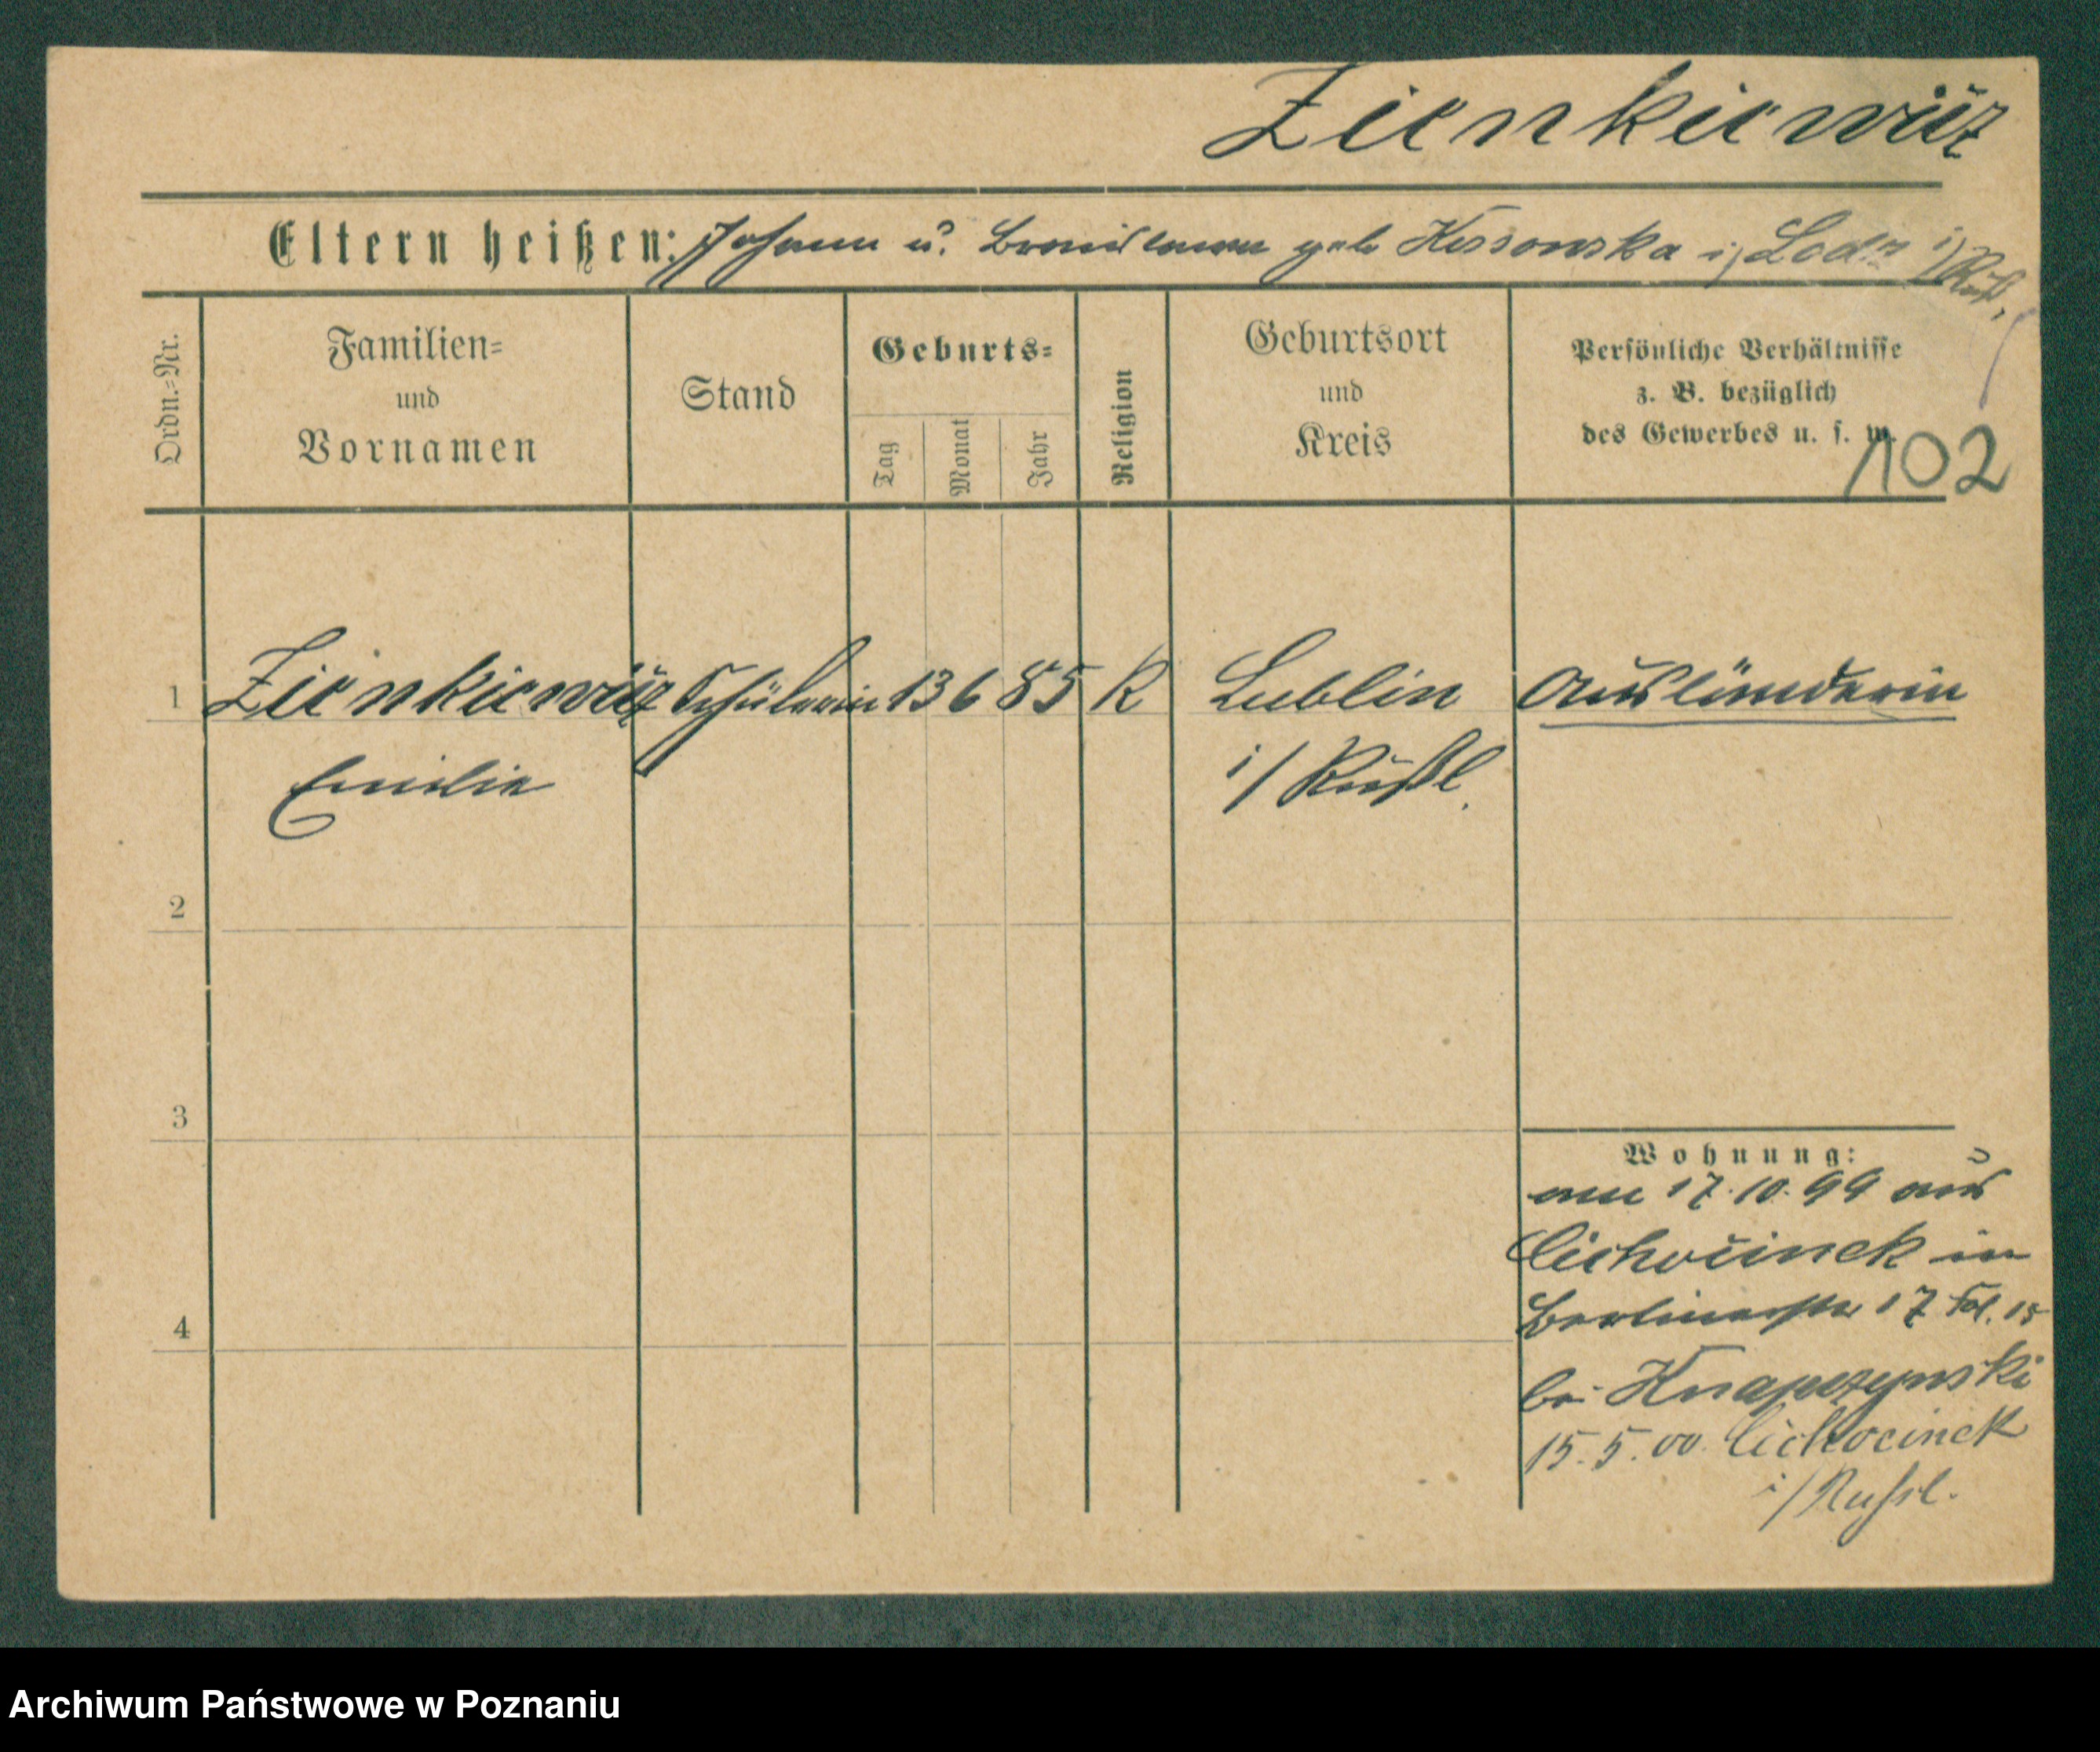 Zienkiewicz
Eltern heißen: Johann u. Bronislawa geb Kossowska i/ Lodz i/ Rußl.
Ordn.=Nr.
Familien=
und
Vornamen
Stand
Geburts=
Tag
Monat
Jahr
Religion
Geburtsort
und
Kreis
Persönliche Verhältnisse
z. B. bezüglich
des Gewerbes u. s. w.
102
1 Zienkiewicz Schülerin 13 6 85 K Lublin Ausländerin
Emilie i/ Rußl.
2
3
Wohnung:
am 17.10.99 aus
Cichocinek in
4
Berlinerstr 17 Fol. 15
bei Knapczynski
15.5.00. Cichocinek
i/ Russl.
Archiwum Państwowe w Poznaniu